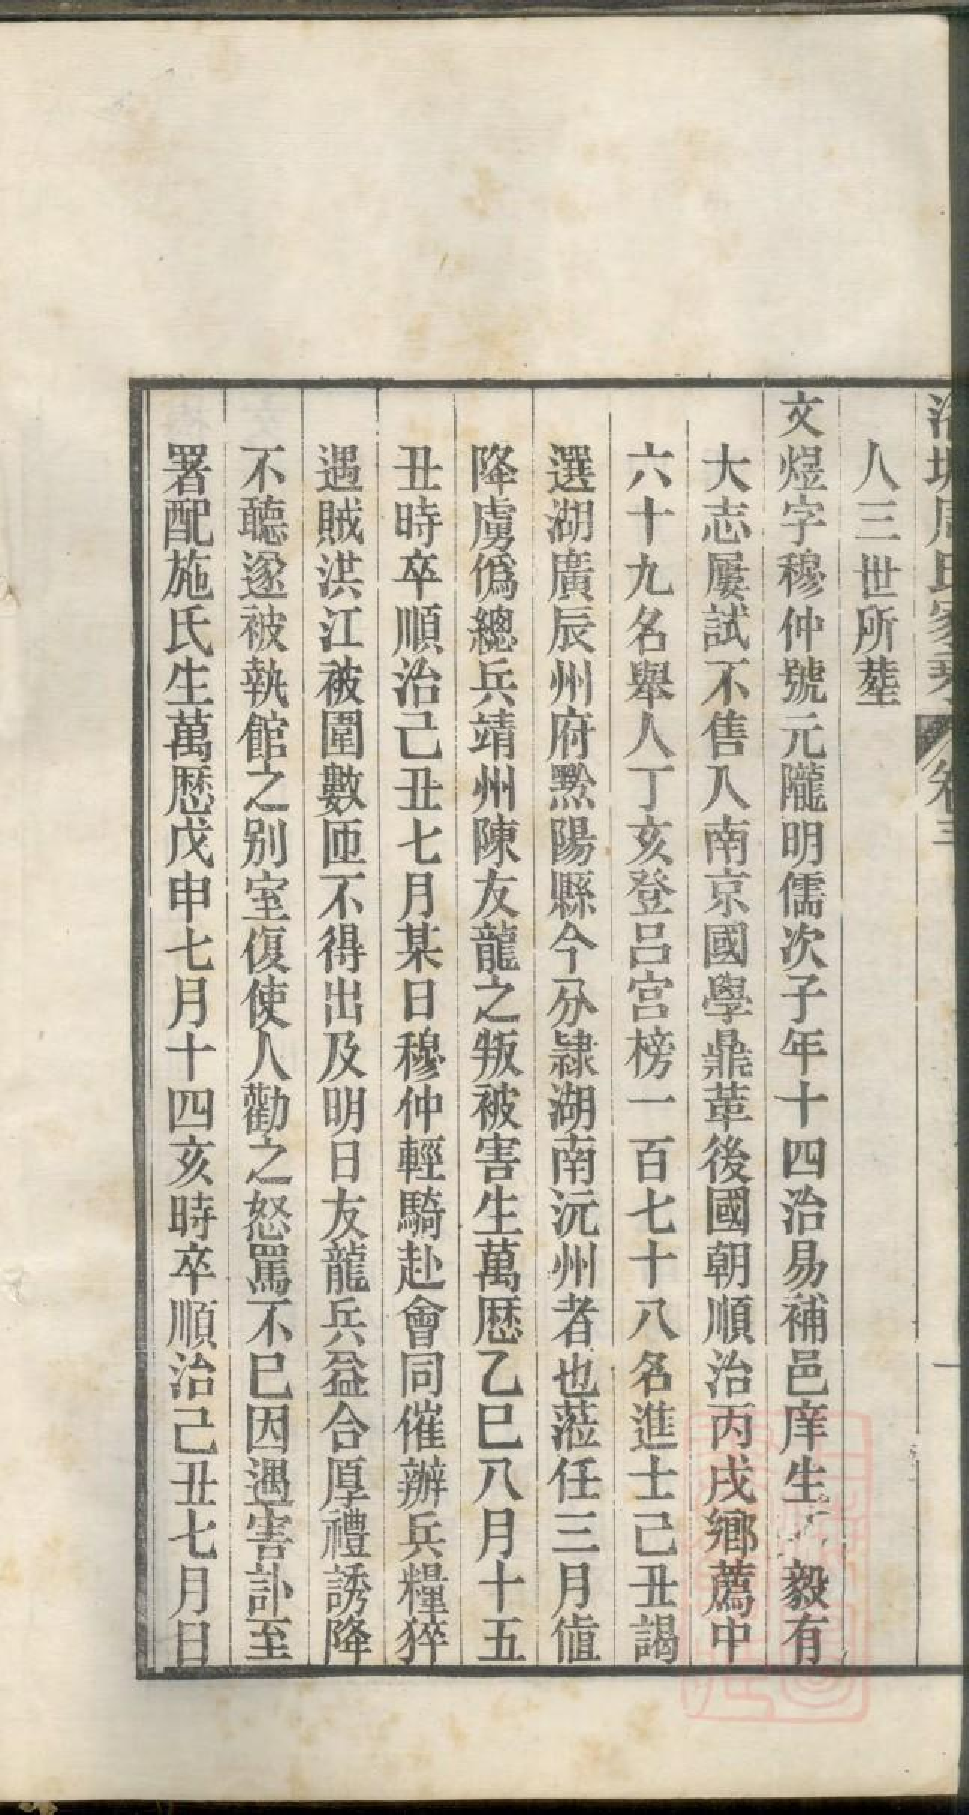 周氏家乘 卷三
人三世所塟
文煜字穆仲號元隴明儒次子年十四治易補邑庠生 毅有
大志屢試不售入南京國學鼎革後國朝順治丙戌鄉薦中
六十九名舉人丁亥登呂宫榜一百七十八名進士己丑謁
選湖廣辰州府黔陽縣今分隷湖南沅州者也蒞任三月値
降虜僞總兵靖州陳友龍之叛被害生萬厯乙巳八月十五
丑時卒順治己丑七月某日穆仲輕騎赴會同催辦兵糧猝
遇賊洪江被圍數匝不得出及明日友龍兵益合厚禮誘降
不聽遂被執館之别室復使人勸之怒罵不已因遇害訃至
署配施氏生萬厯戊申七月十四亥時卒順治己丑七月日